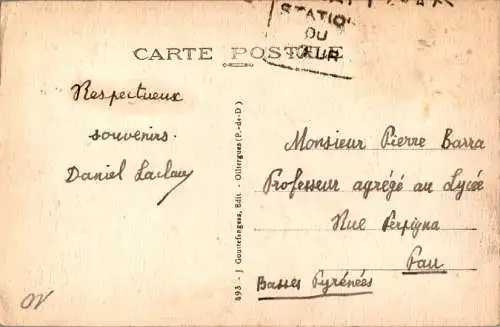 STATION
DU
CŒUR
CARTE POSTALE
Respectueux
souvenirs.
Daniel
493 - J Gouttefangeas, Edit. - Olliergues (P.-de-D)
Monsieur Pierre Barra
Professeur agrégé au Lycée
Rue Perpigna
Pau
Basses Pyrénées